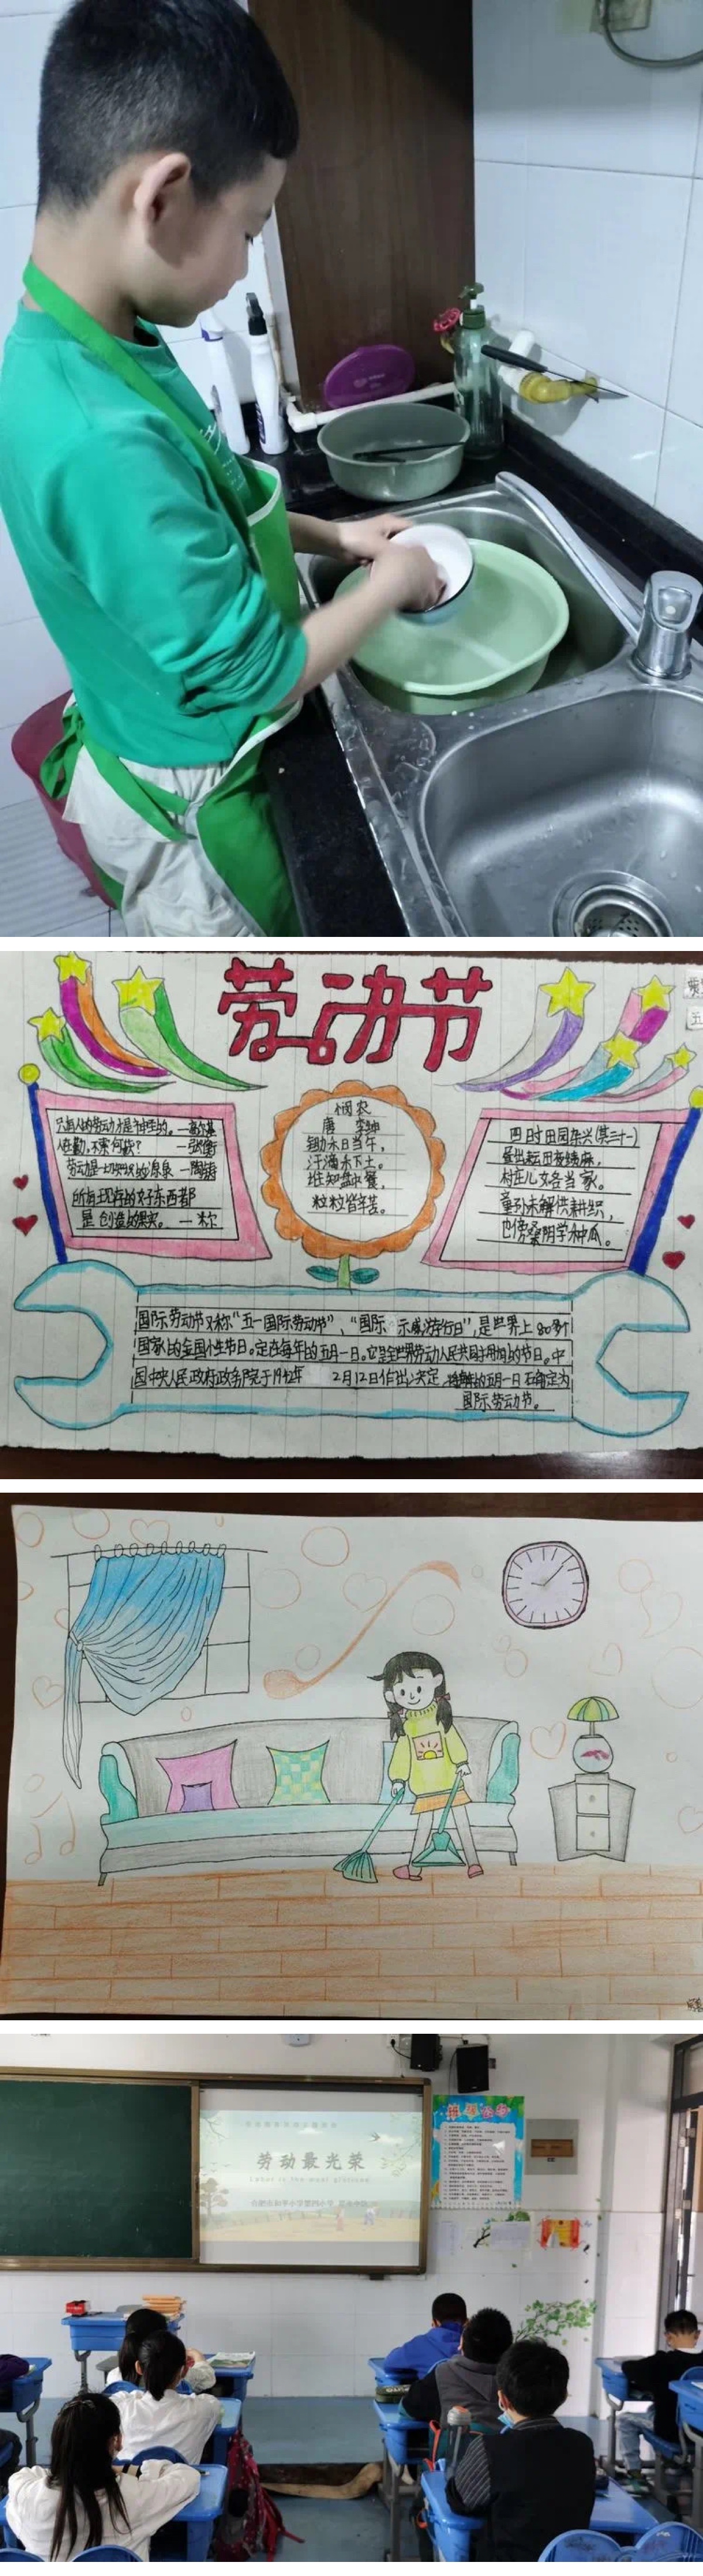 劳动节
只有人的劳动才是神圣的。—高尔基
人生在勤,不索何获? —张衡
劳动是一切知识的源泉 —陶铸
所有现存的好东西都
是创造的果实。—米尔
悯农
唐 李绅
锄禾日当午,
汗滴禾下土。
谁知盘中餐,
粒粒皆辛苦。
四时田园杂兴(其三十一)
昼出耘田夜绩麻,
村庄儿女各当家。
童孙未解供耕织,
也傍桑阴学种瓜。
国际劳动节又称"五一国际劳动节"、"国际 示威游行日",是世界上80多个
国家的全国性节日。定在每年的五月一日。它是全世界劳动人民共同拥有的节日。中
国中央人民政府政务院于1942年 2月12日作出决定,将每年的五月一日 定为
国际劳动节。
劳动最光荣
Labor is the most glorious
班级公约